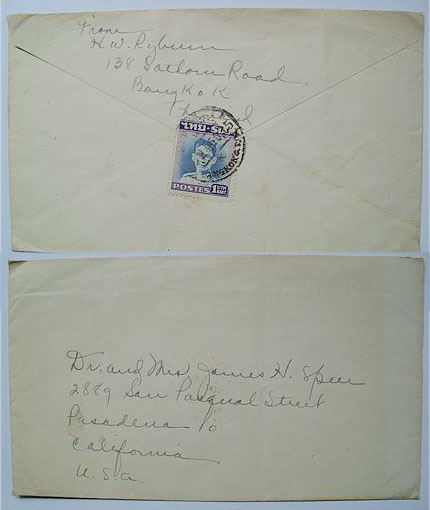 From
H.W. Ryburn
138 Sathorn Road
Bangkok
ไทย
POSTES 1
BANGKOK
Dr. and Mrs. James H. Speer
2889 San Pasqual Street
Pasadena 10
California
U.S.A.